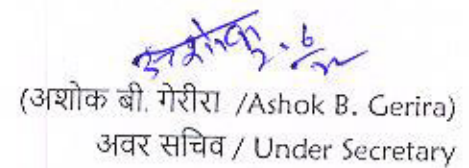 (अशोक बी. गेरीरा /Ashok B. Gerira)
अवर सचिव / Under Secretary